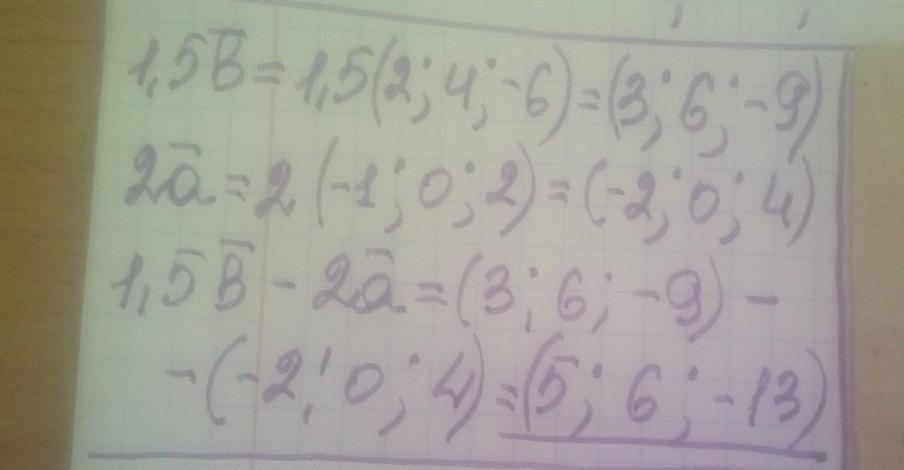 1,5b̅ = 1,5(2; 4; -6) = (3; 6; -9)
2a̅ = 2(-1; 0; 2) = (-2; 0; 4)
1,5b̅ - 2a̅ = (3; 6; -9) -
-(-2; 0; 4) = (5; 6; -13)